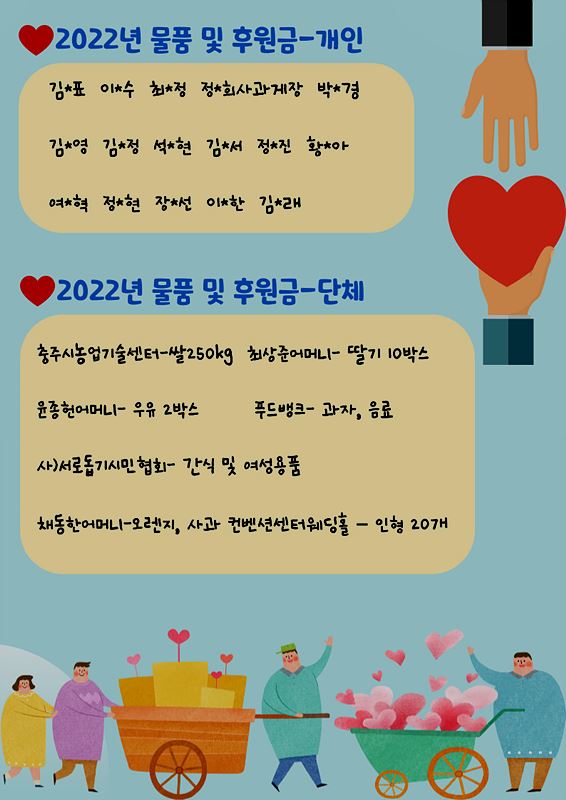 2022년 물품 및 후원금-개인
김*표 이*수 최*정 정*희사과게장 박*경
김*영 김*정 석*현 김*서 정*진 황*아
여*혁 정*현 장*선 이*한 김*래
2022년 물품 및 후원금-단체
충주시농업기술센터-쌀250kg 최상준어머니- 딸기 10박스
윤종헌어머니- 우유 2박스 푸드뱅크- 과자, 음료
사)서로돕기시민협회- 간식 및 여성용품
채동한어머니-오렌지, 사과 컨벤션센터웨딩홀 - 인형 20개